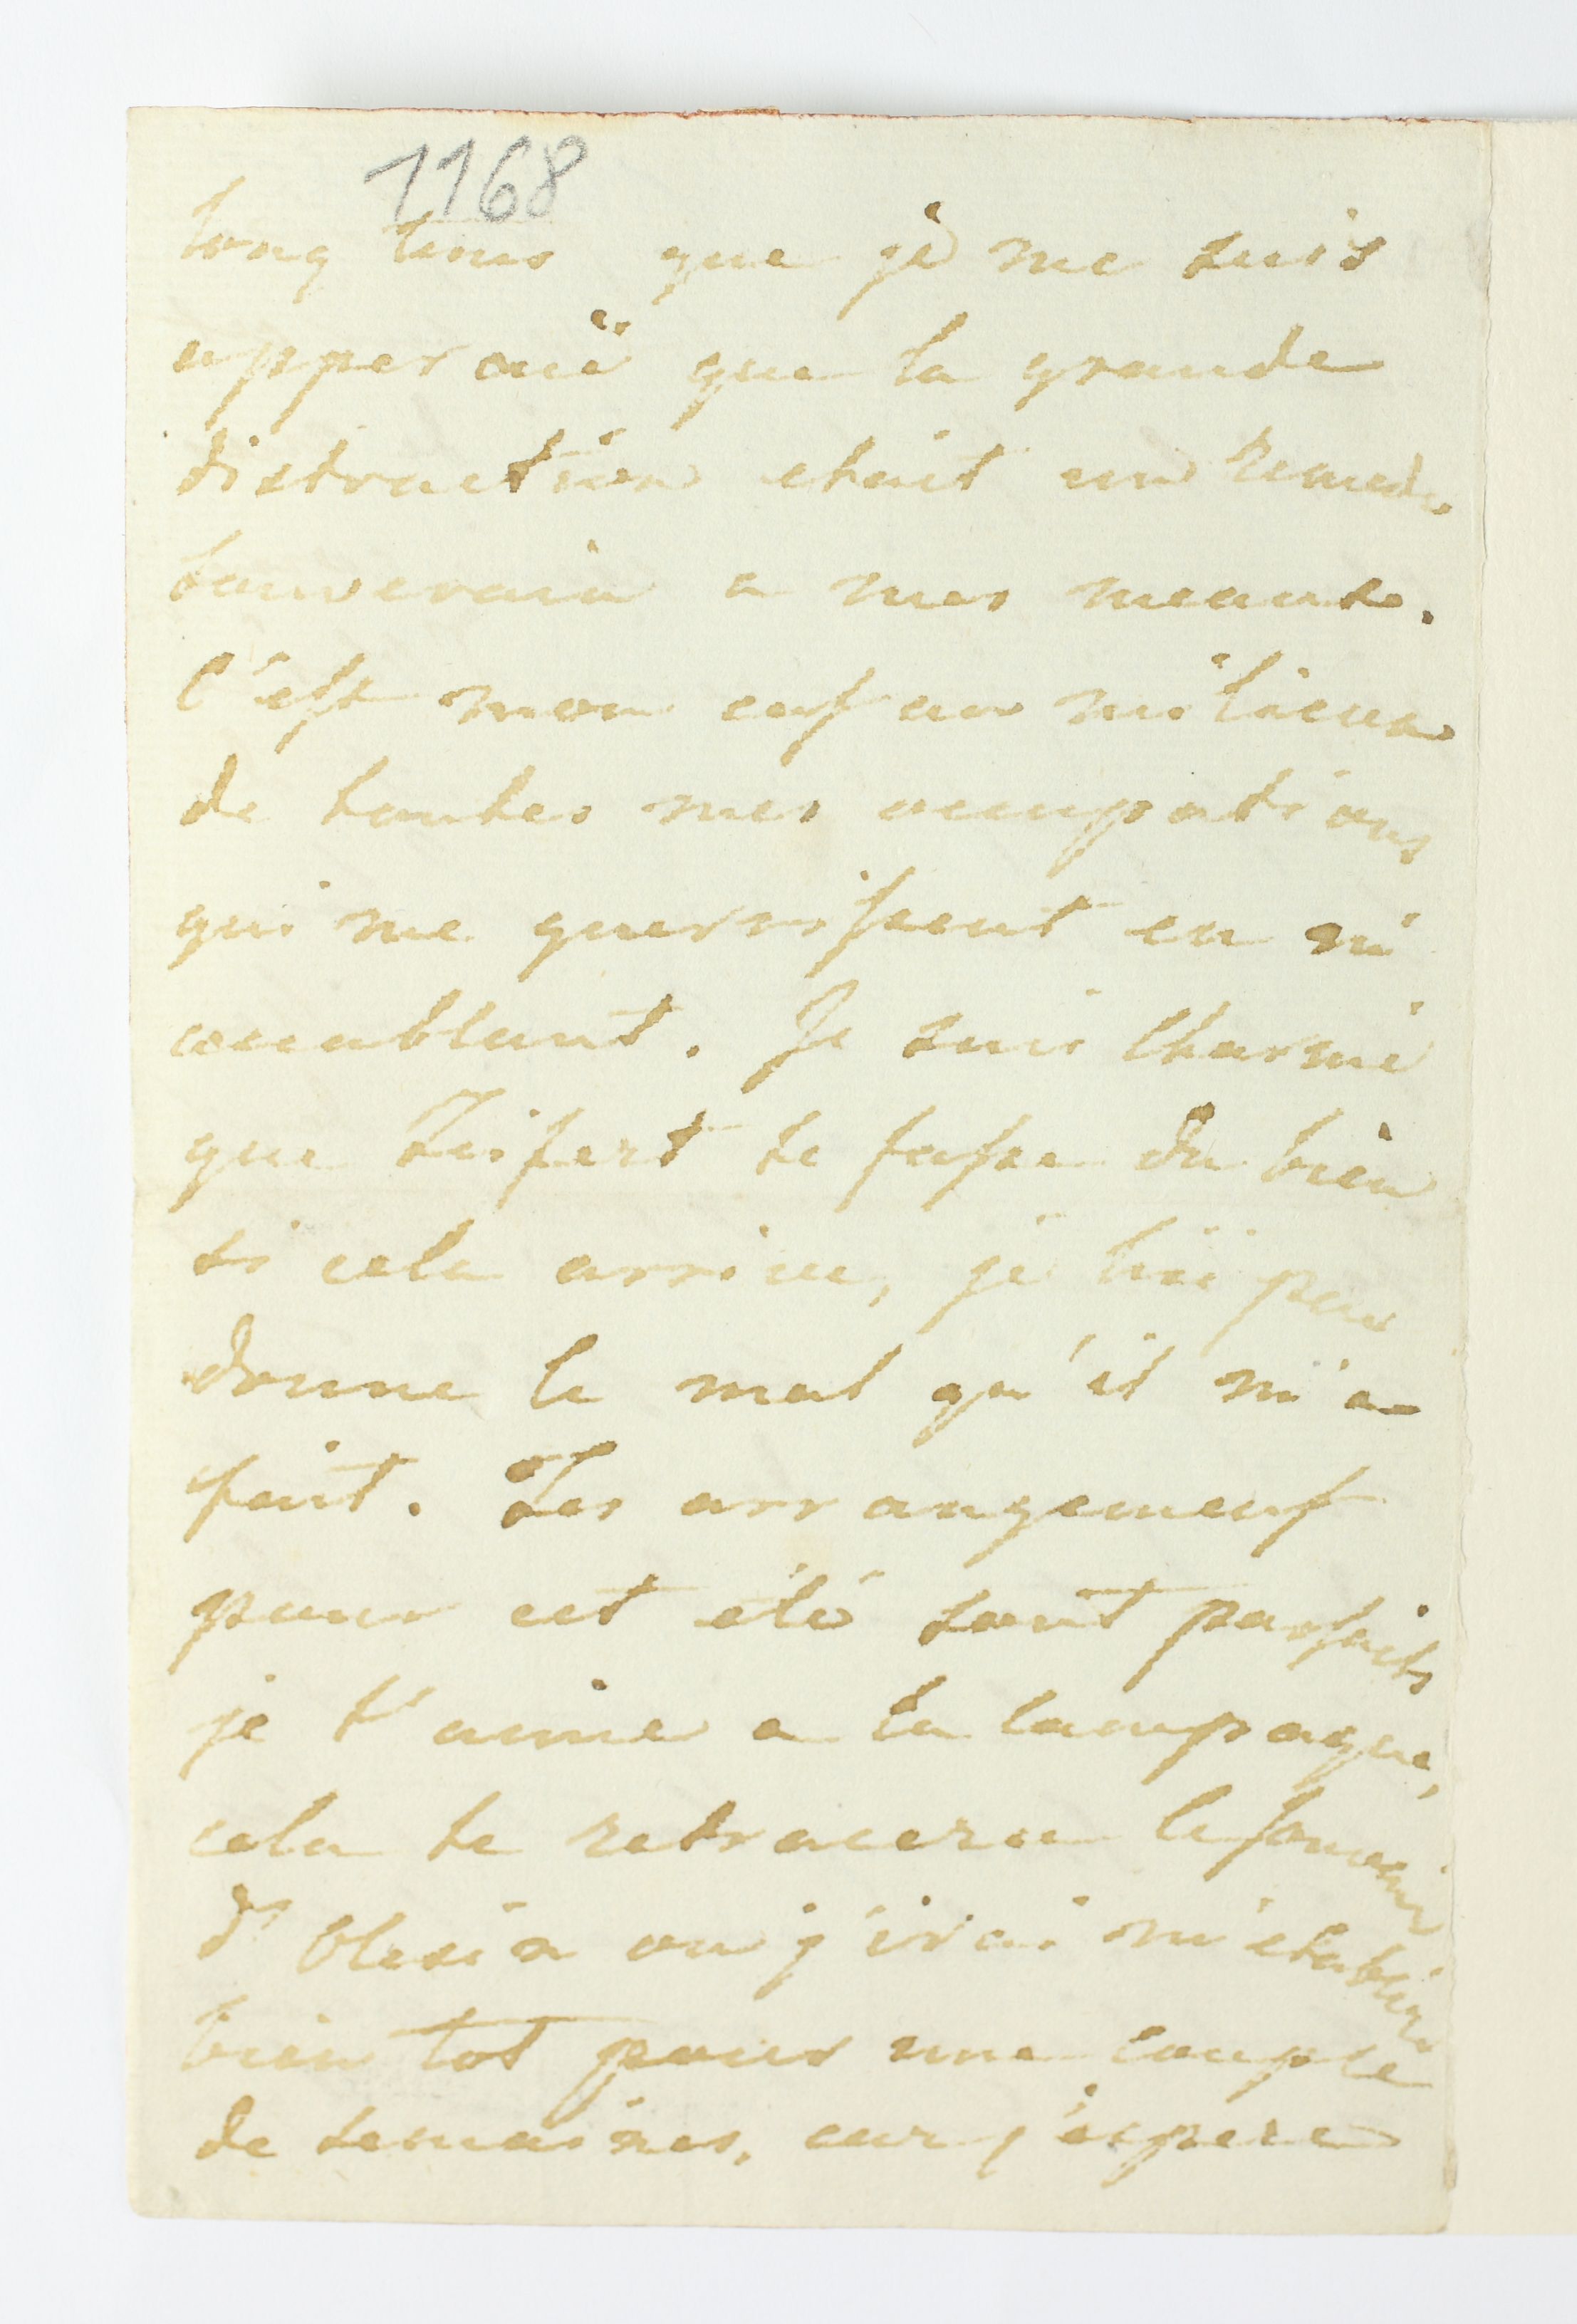 1168
long tems que je me suis
apperçuë que la grande
distraction etait un remede
souverain a mes meaux.
C'est mon enf au milieux
de toutes mes occupations
qui me guerrissent en m'
accablant. Je suis Charmé
que Seifert te fasse du bien
si cela arrive, je lüi par
donne le mal qu'il m'a
fait. Les arrangements
pour cet été sont parfaits
je t'aime a la Campagne,
cela te retracera le souvenir
d' où j'irai m'etablir
bien tot pour une couple
de semaines, car j'espere